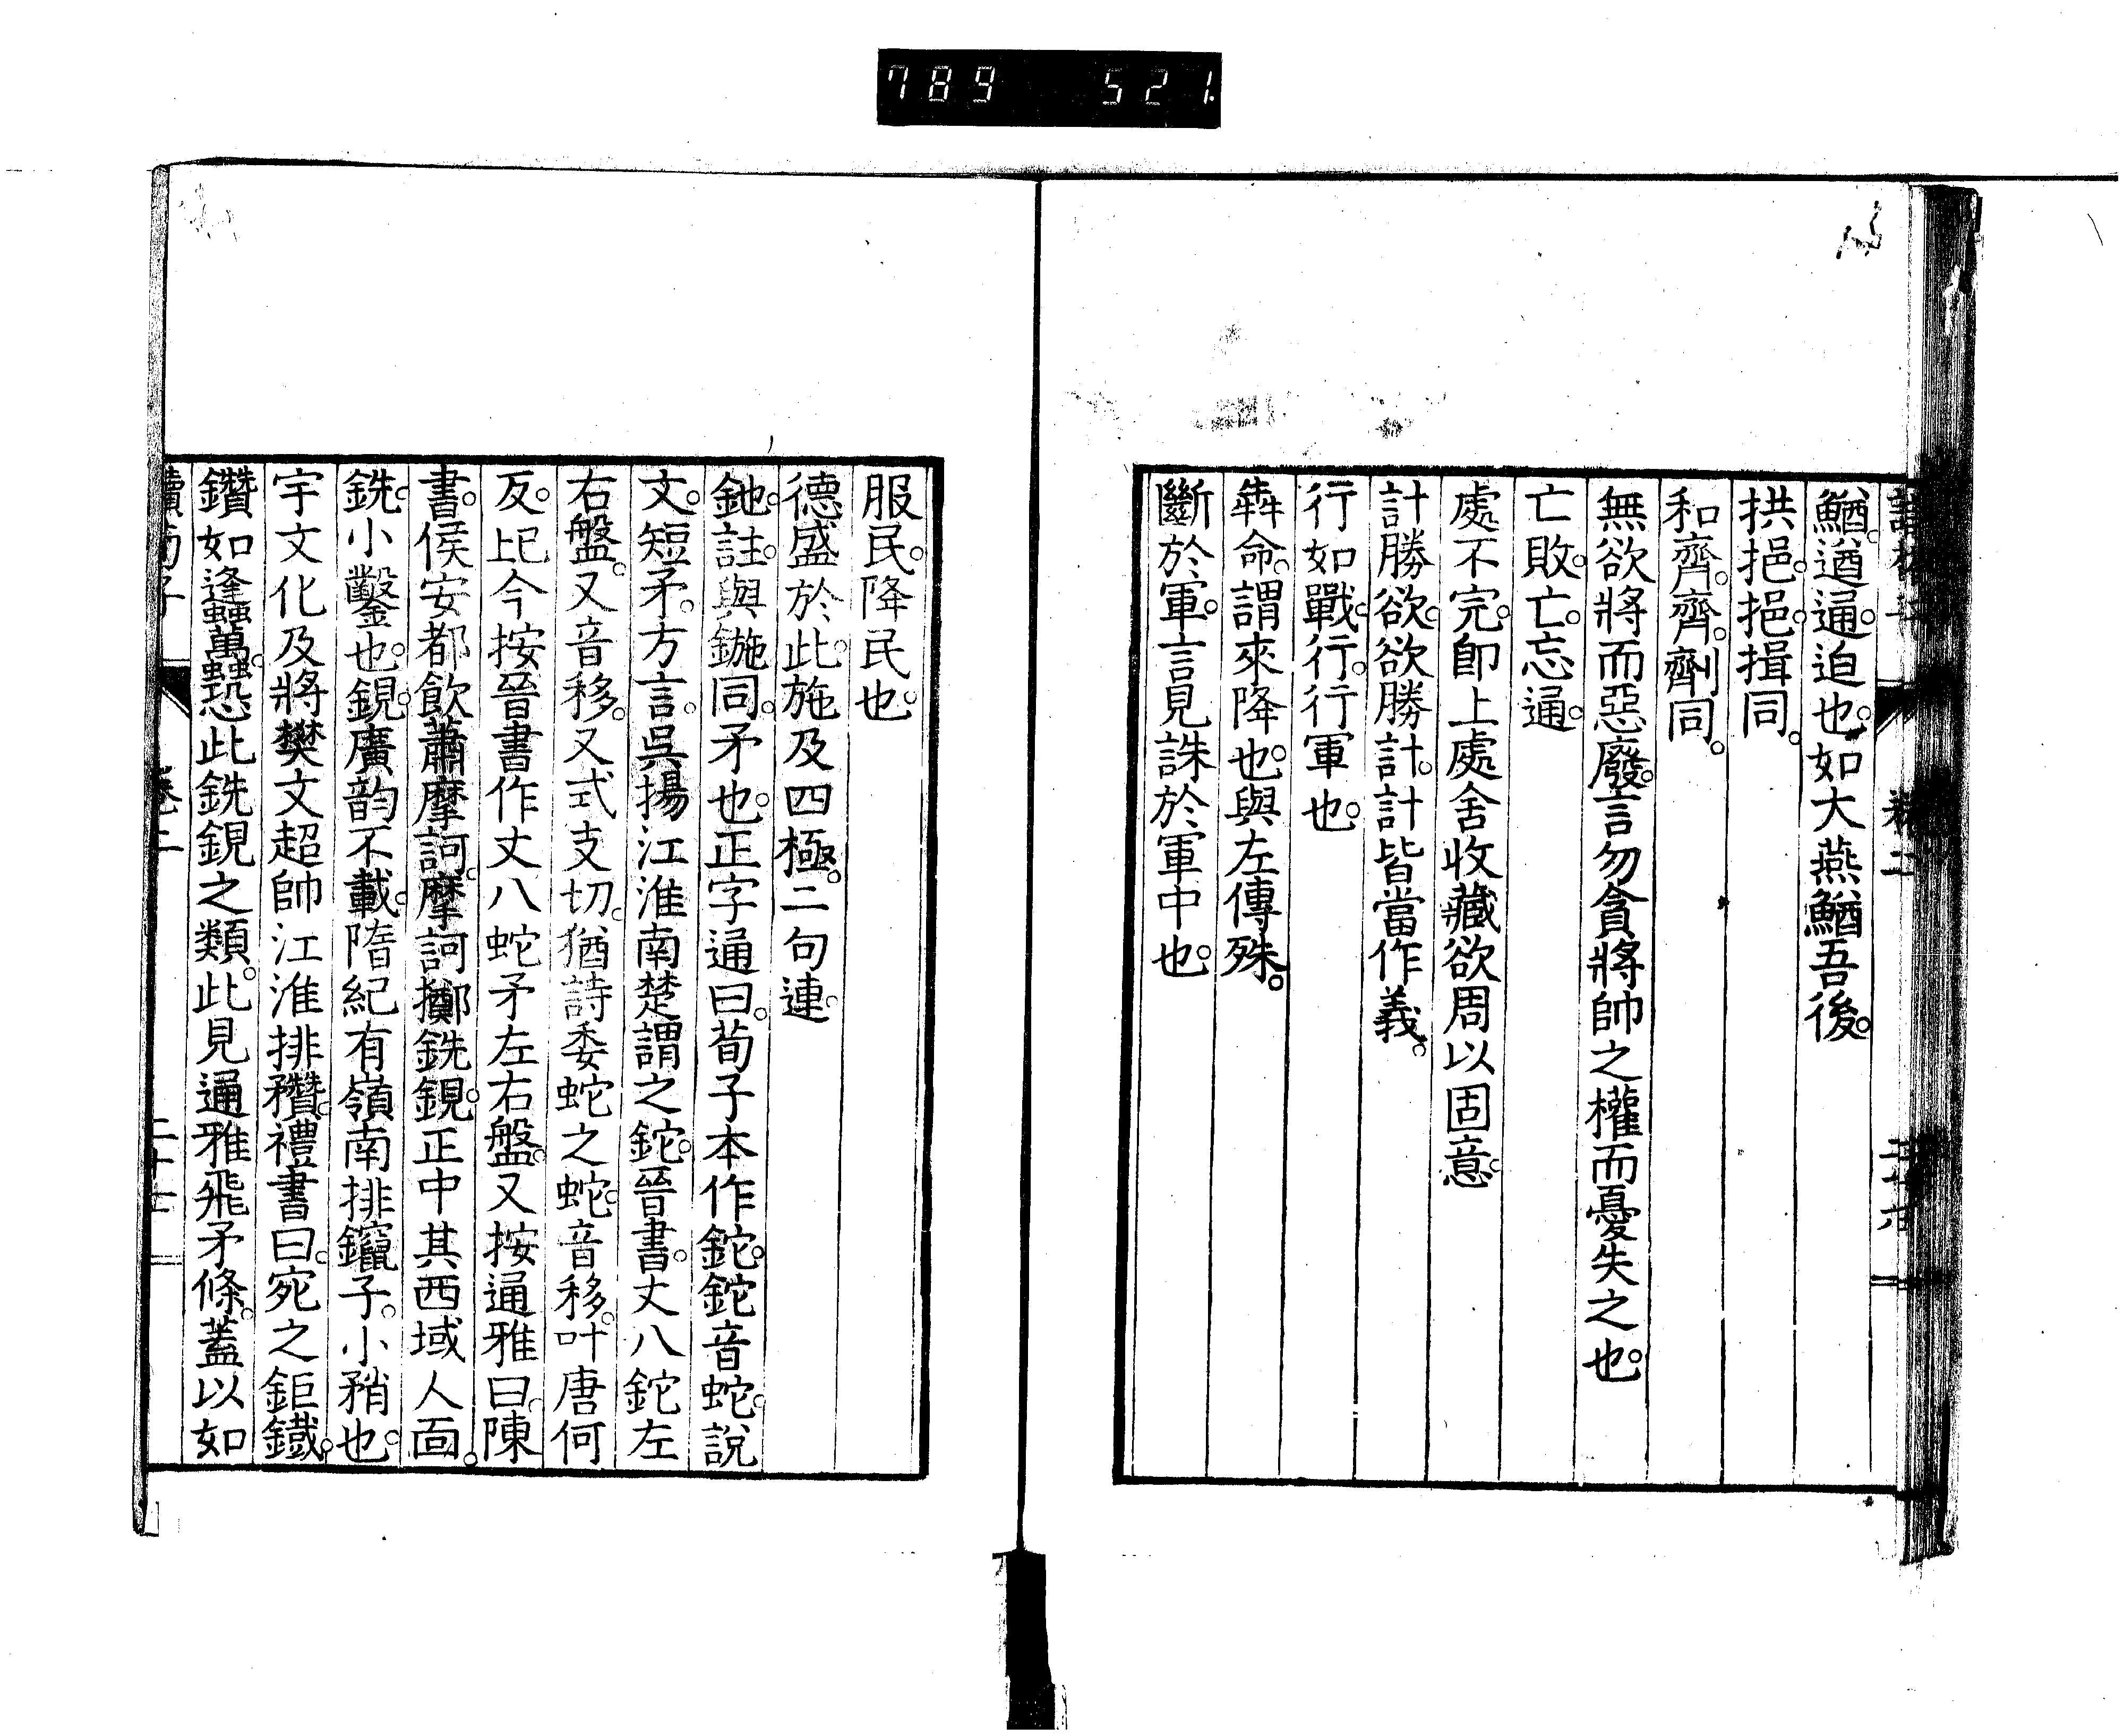 789 521
鰌。遒通。迫也。如大燕鰌吾後。
拱挹。挹。揖同。
和齊。齊。劑同。
無欲將而惡廢。言勿貪將帥之權而憂失之也。
亡敗。亡。忘通。
處不完。卽上處舍收藏欲周以固意。
計勝欲。欲勝計。計皆當作義。
行如戰。行。行軍也。
犇命。謂來降也。與左傳殊。
斷於軍。言見誅於軍中也。
服民。降民也。
德盛於此。施及四極。二句連。
鉇。註。與鍦同。矛也。正字通曰。荀子本作鉈。鉈音蛇。說
文。短矛。方言。吳揚江淮南楚謂之鉈。晉書。丈八鉈左
右盤。又音移。又式支切。猶詩委蛇之蛇。音移。叶唐何
反。圯今按晉書作丈八蛇矛左右盤。又按通雅曰。陳
書。侯安都飮蕭摩訶。摩訶擲銑鋧。正中其西域人面。
銑。小鑿也。鋧。廣韵不載。隋紀有嶺南排鑹子。小矟也。
宇文化及將樊文超帥江淮排䂎。禮書曰。宛之鉅鐵。
鑽如逢蠭蠆。恐此銑鋧之類。此見通雅飛矛條。蓋以如
讀荀子 卷二